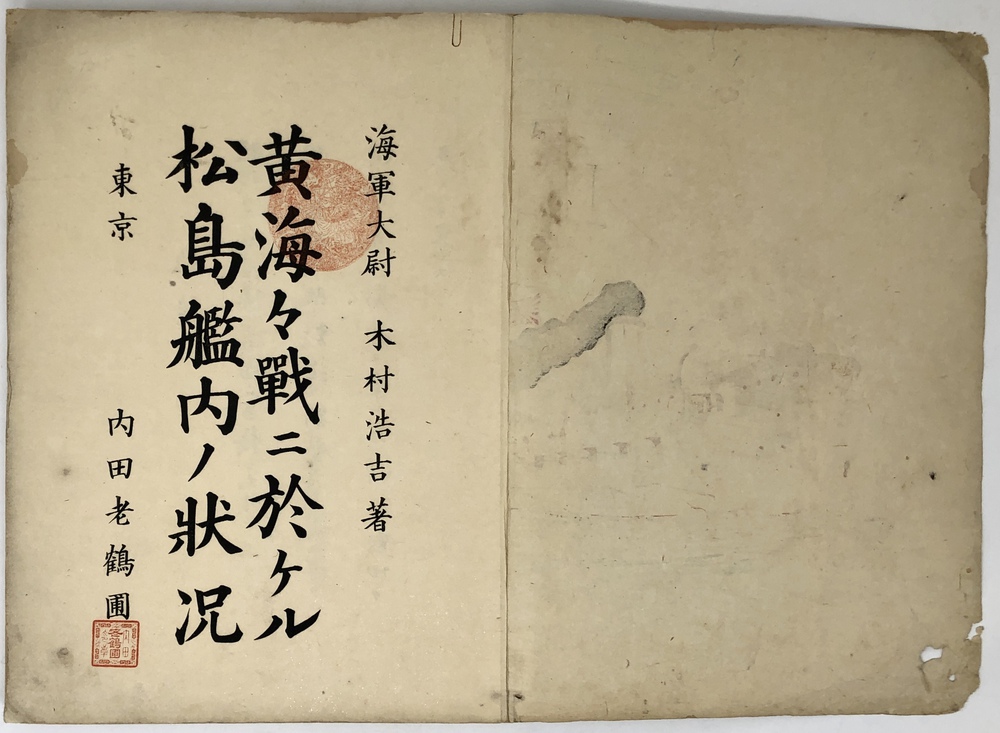 海軍大尉 木村浩吉著
黄海々戰ニ於ケル
松島艦内ノ狀况
東京 内田老鶴圃